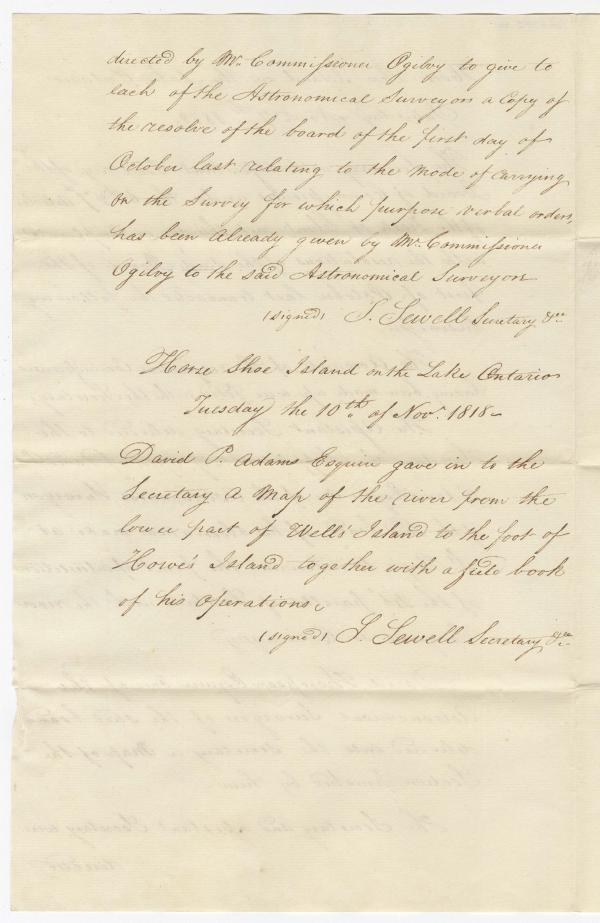 directed by Mr. Commissioner Ogilvy to give to
each of the Astronomical Surveyors a Copy of
the resolve of the board of the first day of
October last relating to the mode of carrying
on the Survey for which purpose verbal orders,
has been already given by Mr. Commissioner
Ogilvy to the said Astronomical Surveyors
(signed) S. Sewell Secretary &ca
Horse Shoe Island on the Lake Ontario
Tuesday the 10th of Novr. 1818
David P. Adams Esquire gave in to the
Secretary a Map of the river from the
lower part of Well's Island to the foot of
Howe's Island together with a field book
of his operations.
(signed) S. Sewell Secretary &ca